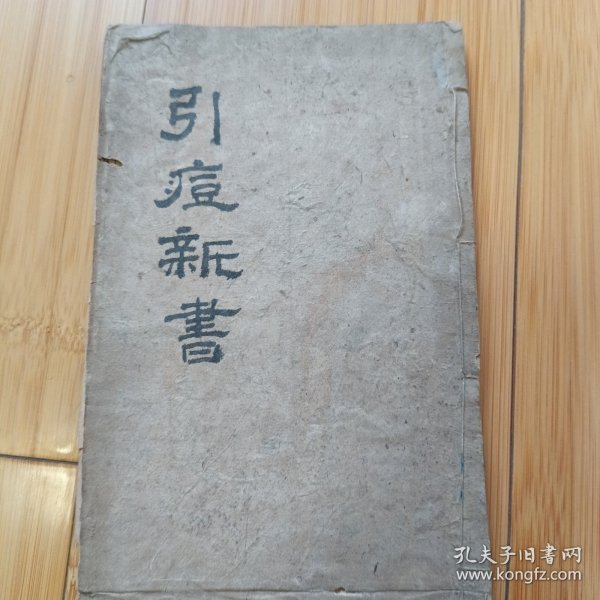 引痘新書
孔夫子旧書网
www.kongfz.com